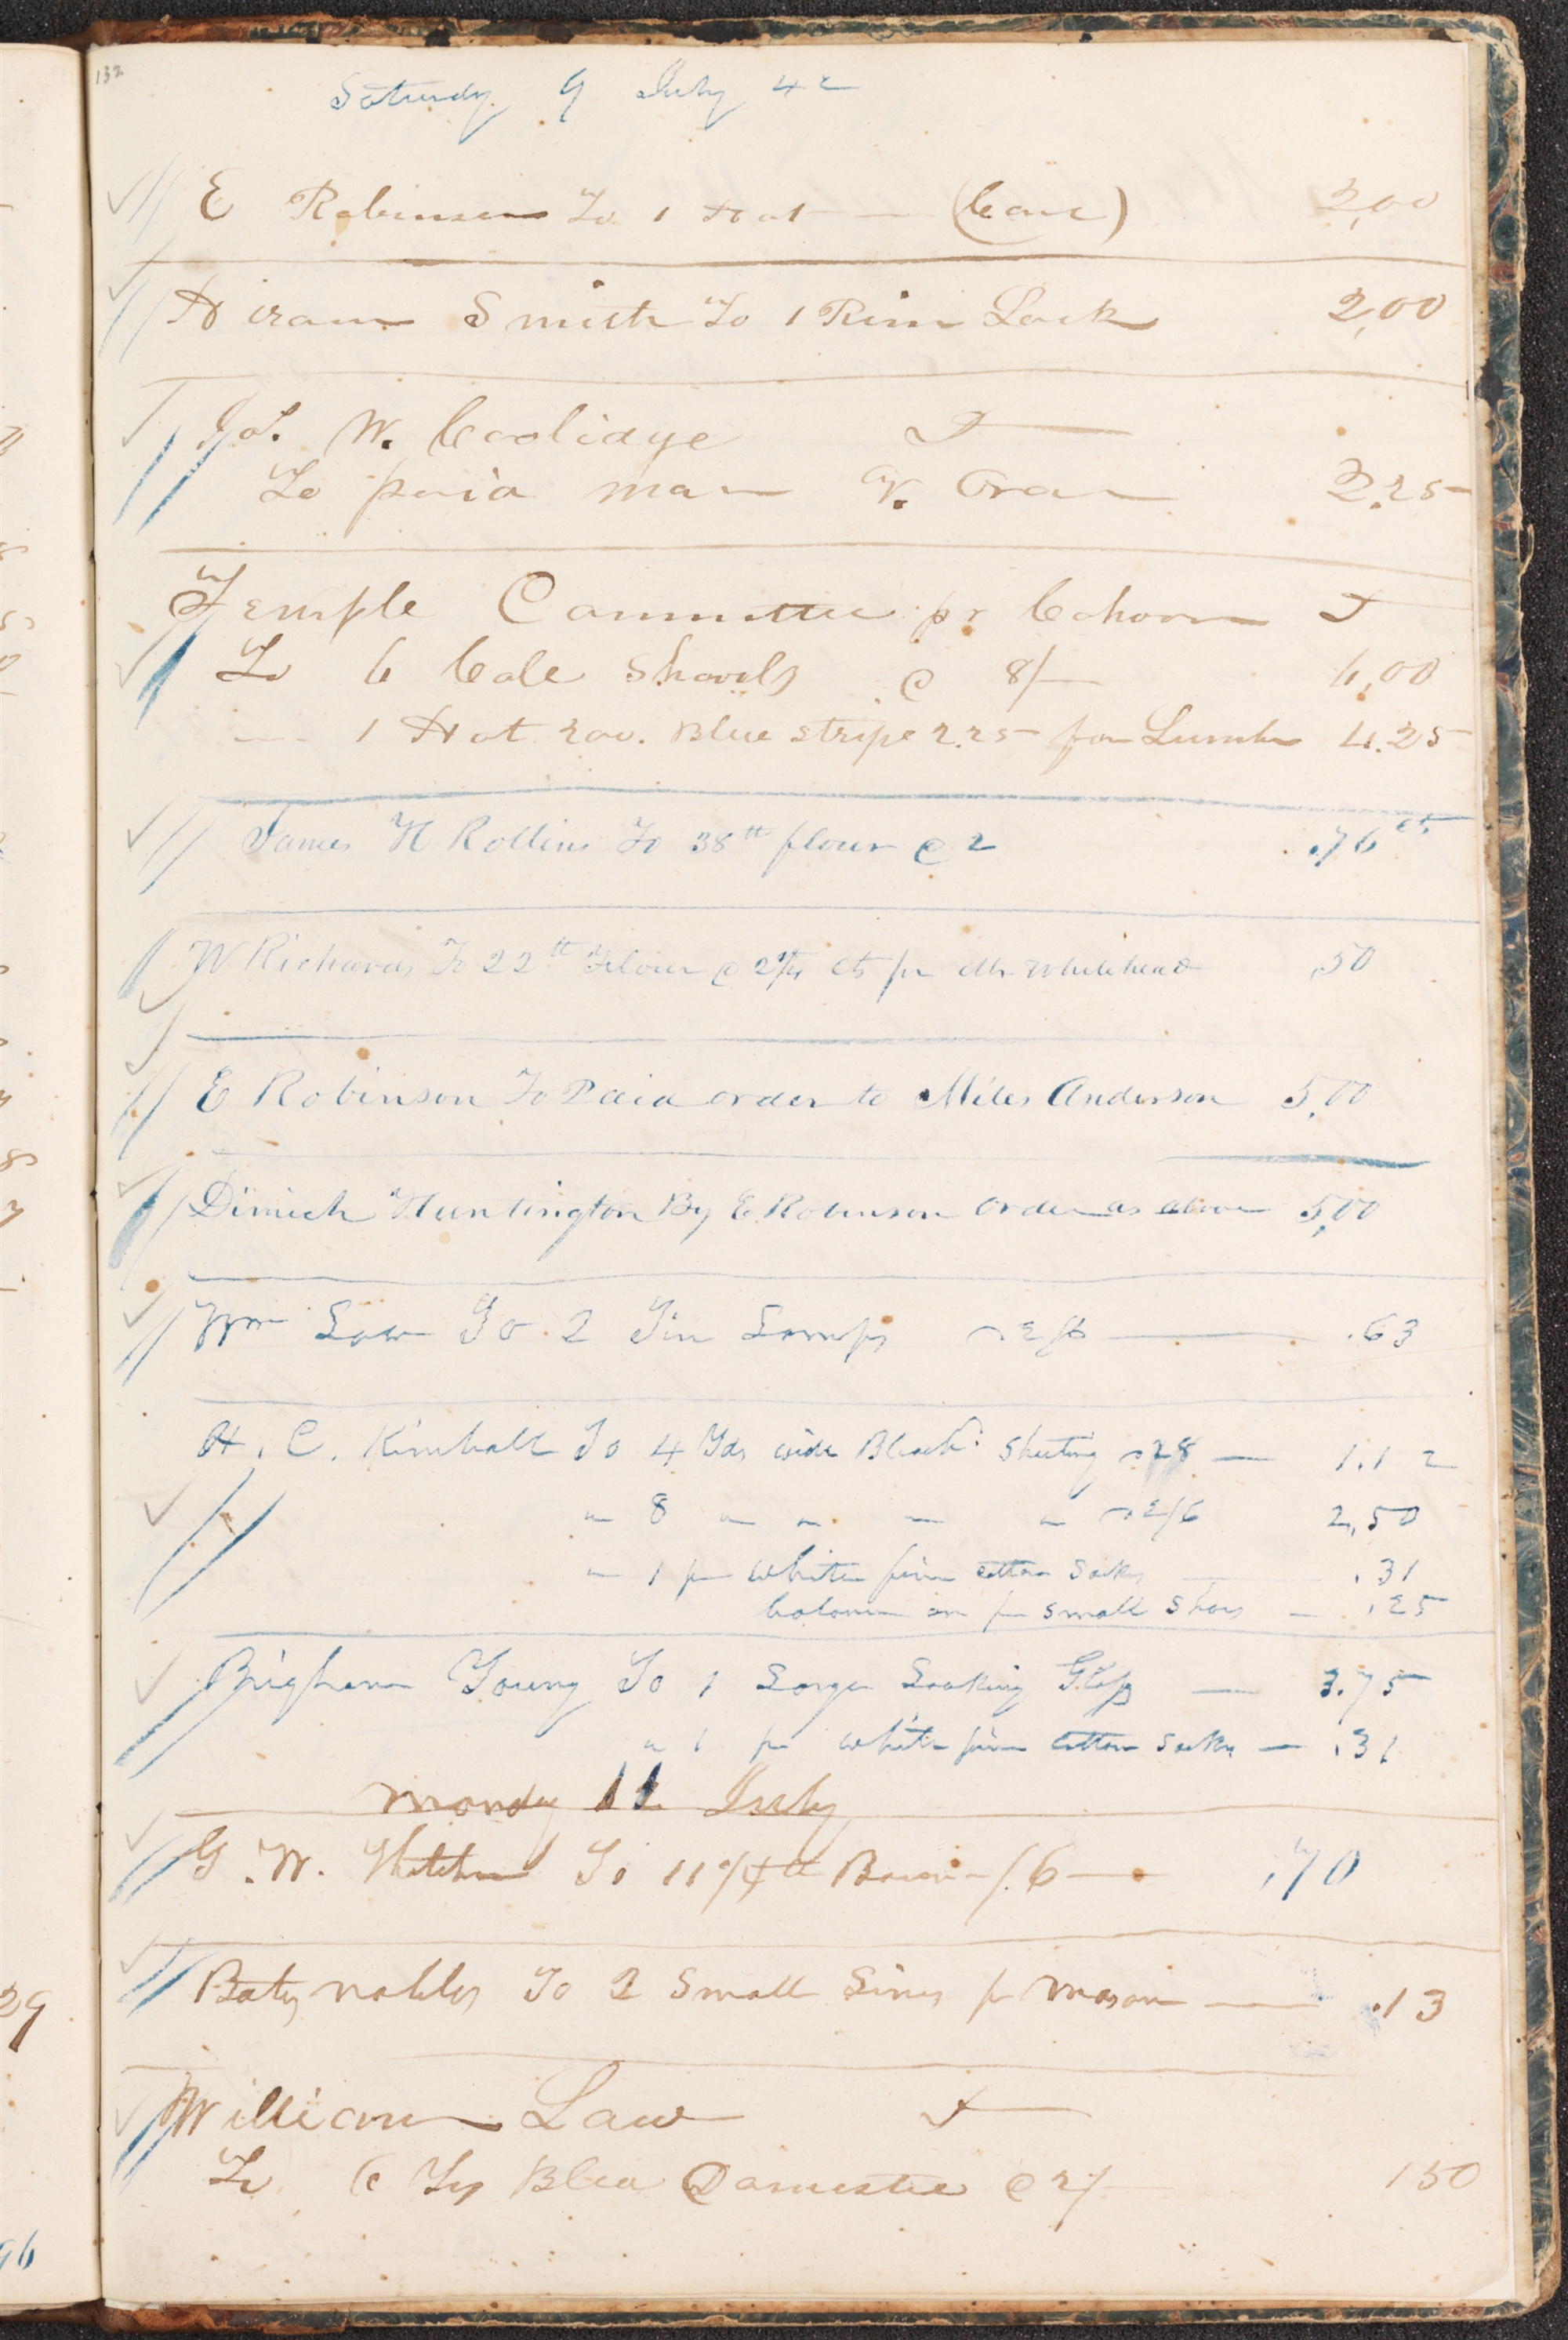 132
Saturdy 9 July 42
E Robinson To 1 Hat — (Cave) 2,00
Hiram Smith To 1 Rim Lock 2,00
Jos. W. Coolidge D
To paid man 2.25
Temple Committee pr Cahoon D
To 6 Cole Shovels @ 8/ 6,00
1 Hat 200. Blue stripe 2.25 for Lumber 4.25
James H Rollins To 38 tt flour @ 2 .76 cts
W Richards To 22 tt Flour @ 2¼ cts pr Mr Whitehead ,50
E Robinson To Paid order to Miles Anderson 5,00
Dimick Huntington By E. Robinson order as above 5,00
Wm Law To 2 Tin Lamps 2/6 — .63
H. C. Kimball To 4 Yds wide Bleachd: Sheeting 28 — 1.12
" 8 " " " " 2/6 2,50
" 1 pr white fine cotton Socks — .31
balance on pr small Shoes — .25
Brigham Young To 1 Large Looking Glass — 3.75
" 1 pr white fine cotton socks — .31
Monday 11 July
G. W. To 11 ¾ tt Bacon /.6 — ,70
Bates nobles To 2 Small Lines pr Mason — .13
William Law D
To 6 Yds Blea Domestic @ 2/ 150
29
96